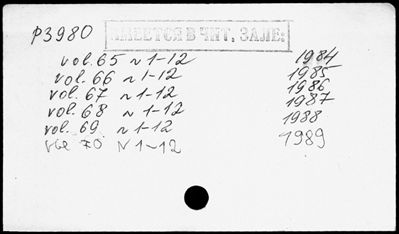 р3980 ИМЕЕТСЯ В ЧИТ. ЗАЛЕ:
vol. 65 N 1-12 1984
vol. 66 N 1-12 1985
vol. 67 N 1-12 1986
vol. 68 N 1-12 1987
vol. 69 N 1-12 1988
vol 70 N 1-12 1989